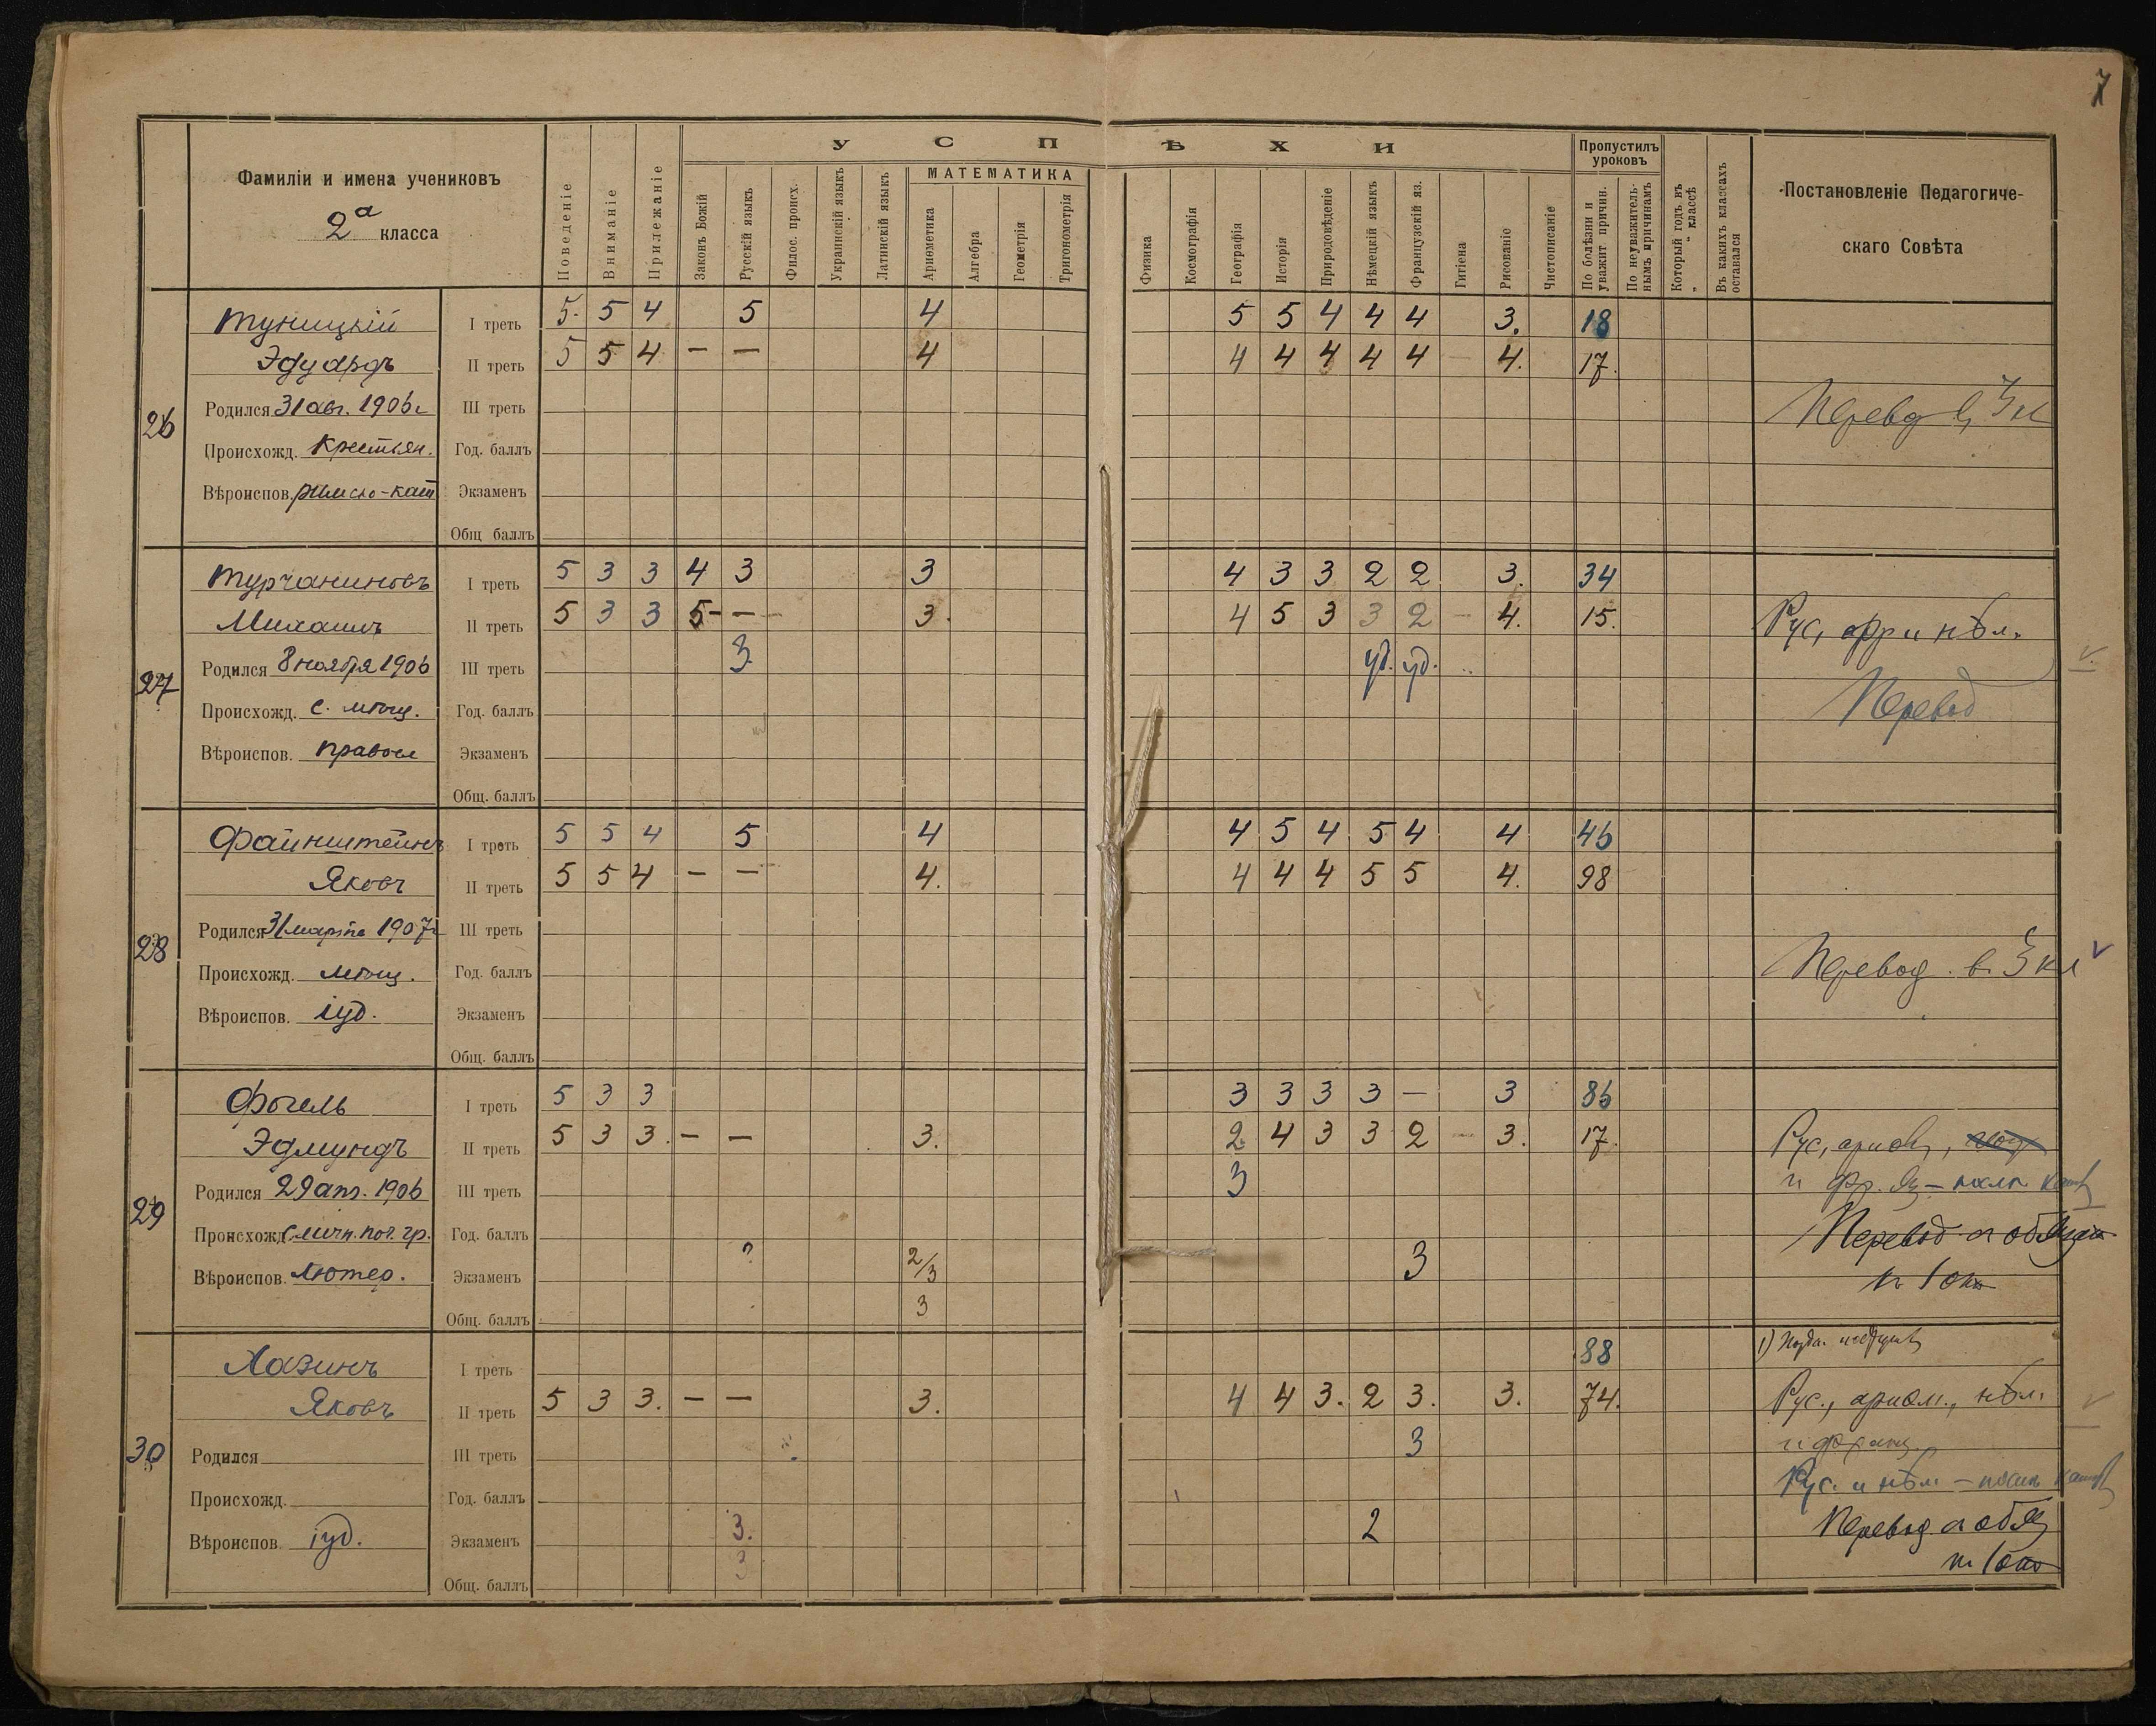 7
Фамиліи и имена учениковъ
2а класса
Поведеніе
Вниманіе
Прилежаніе
УСПѢХИ
Законъ Божій
Русскій языкъ
Филос. происх.
Украинскій языкъ
Латинскій языкъ
МАТЕМАТИКА
Ариѳметика
Алгебра
Геометрія
Тригонометрія
Физика
Космографія
Географія
Исторія
Природовѣденіе
Нѣмецкій языкъ
Французскій яз.
Гигіена
Рисованіе
Чистописаніе
Пропустилъ уроковъ
По болѣзни и уважит причин.
По неуважитель-нымъ причинамъ
Который годъ въ „ “ классѣ
Въ какихъ классахъ оставался
Постановленіе Педагогиче-
скаго Совѣта
26
Туницкій I треть 5. 5 4 5 4 5 5 4 4 4 3. 18
Эдуардъ II треть 5 5 4 — — 4 4 4 4 4 4 — 4. 17.
Родился 31 авг. 1906 г III треть
Перевод в 3 кл
Происхожд. Крестьян. Год. баллъ
Вѣроиспов. римско-кат Экзаменъ
Общ баллъ
27
Турчаниновъ I треть 5 3 3 4 3 3 4 3 3 2 2 3. 34
Михаилъ II треть 5 3 3 5 — — 3. 4 5 3 3 2 — 4. 15. Рус, фр и нѣм.
Родился 8 ноября 1906 III треть 3. уд. уд.
Происхожд. с. мѣщ. Год. баллъ Перевод
Вѣроиспов. Правосл Экзаменъ
Общ. баллъ
28
Файнштейнъ I треть 5 5 4 5 4 4 5 4 5 4 4 46
Яковъ II треть 5 5 4 — — 4. 4 4 4 5 5 4. 98
Родился 31 марта 1907 г III треть
Происхожд. мѣщ. Год. баллъ Перевод. в 3 кл
Вѣроиспов. іуд. Экзаменъ
Общ. баллъ
29
Фогель I треть 5 3 3 3 3 3 3 — 3 86
Эдмундъ II треть 5 3 3. — — 3. 2 4 3 3 2 — 3. 17. Рус, ариѳ,
Родился 29 апр. 1906 III треть 3 и фр. яз —
Происхожд. с личн. поч. гр. Год. баллъ Перевод
Вѣроиспов. Лютер. Экзаменъ ? 2/3 3
Общ. баллъ 3
30
Хазинъ I треть 88 1)
Яковъ II треть 5 3 3. — — 3. 4 4 3. 2 3. 3. 74. Рус., ариѳм., нѣм.
Родился III треть 3 и франц.
Происхожд. Год. баллъ Рус. и нѣм —
Вѣроиспов. іуд. Экзаменъ 3. 2 Перевод
Общ. баллъ 3